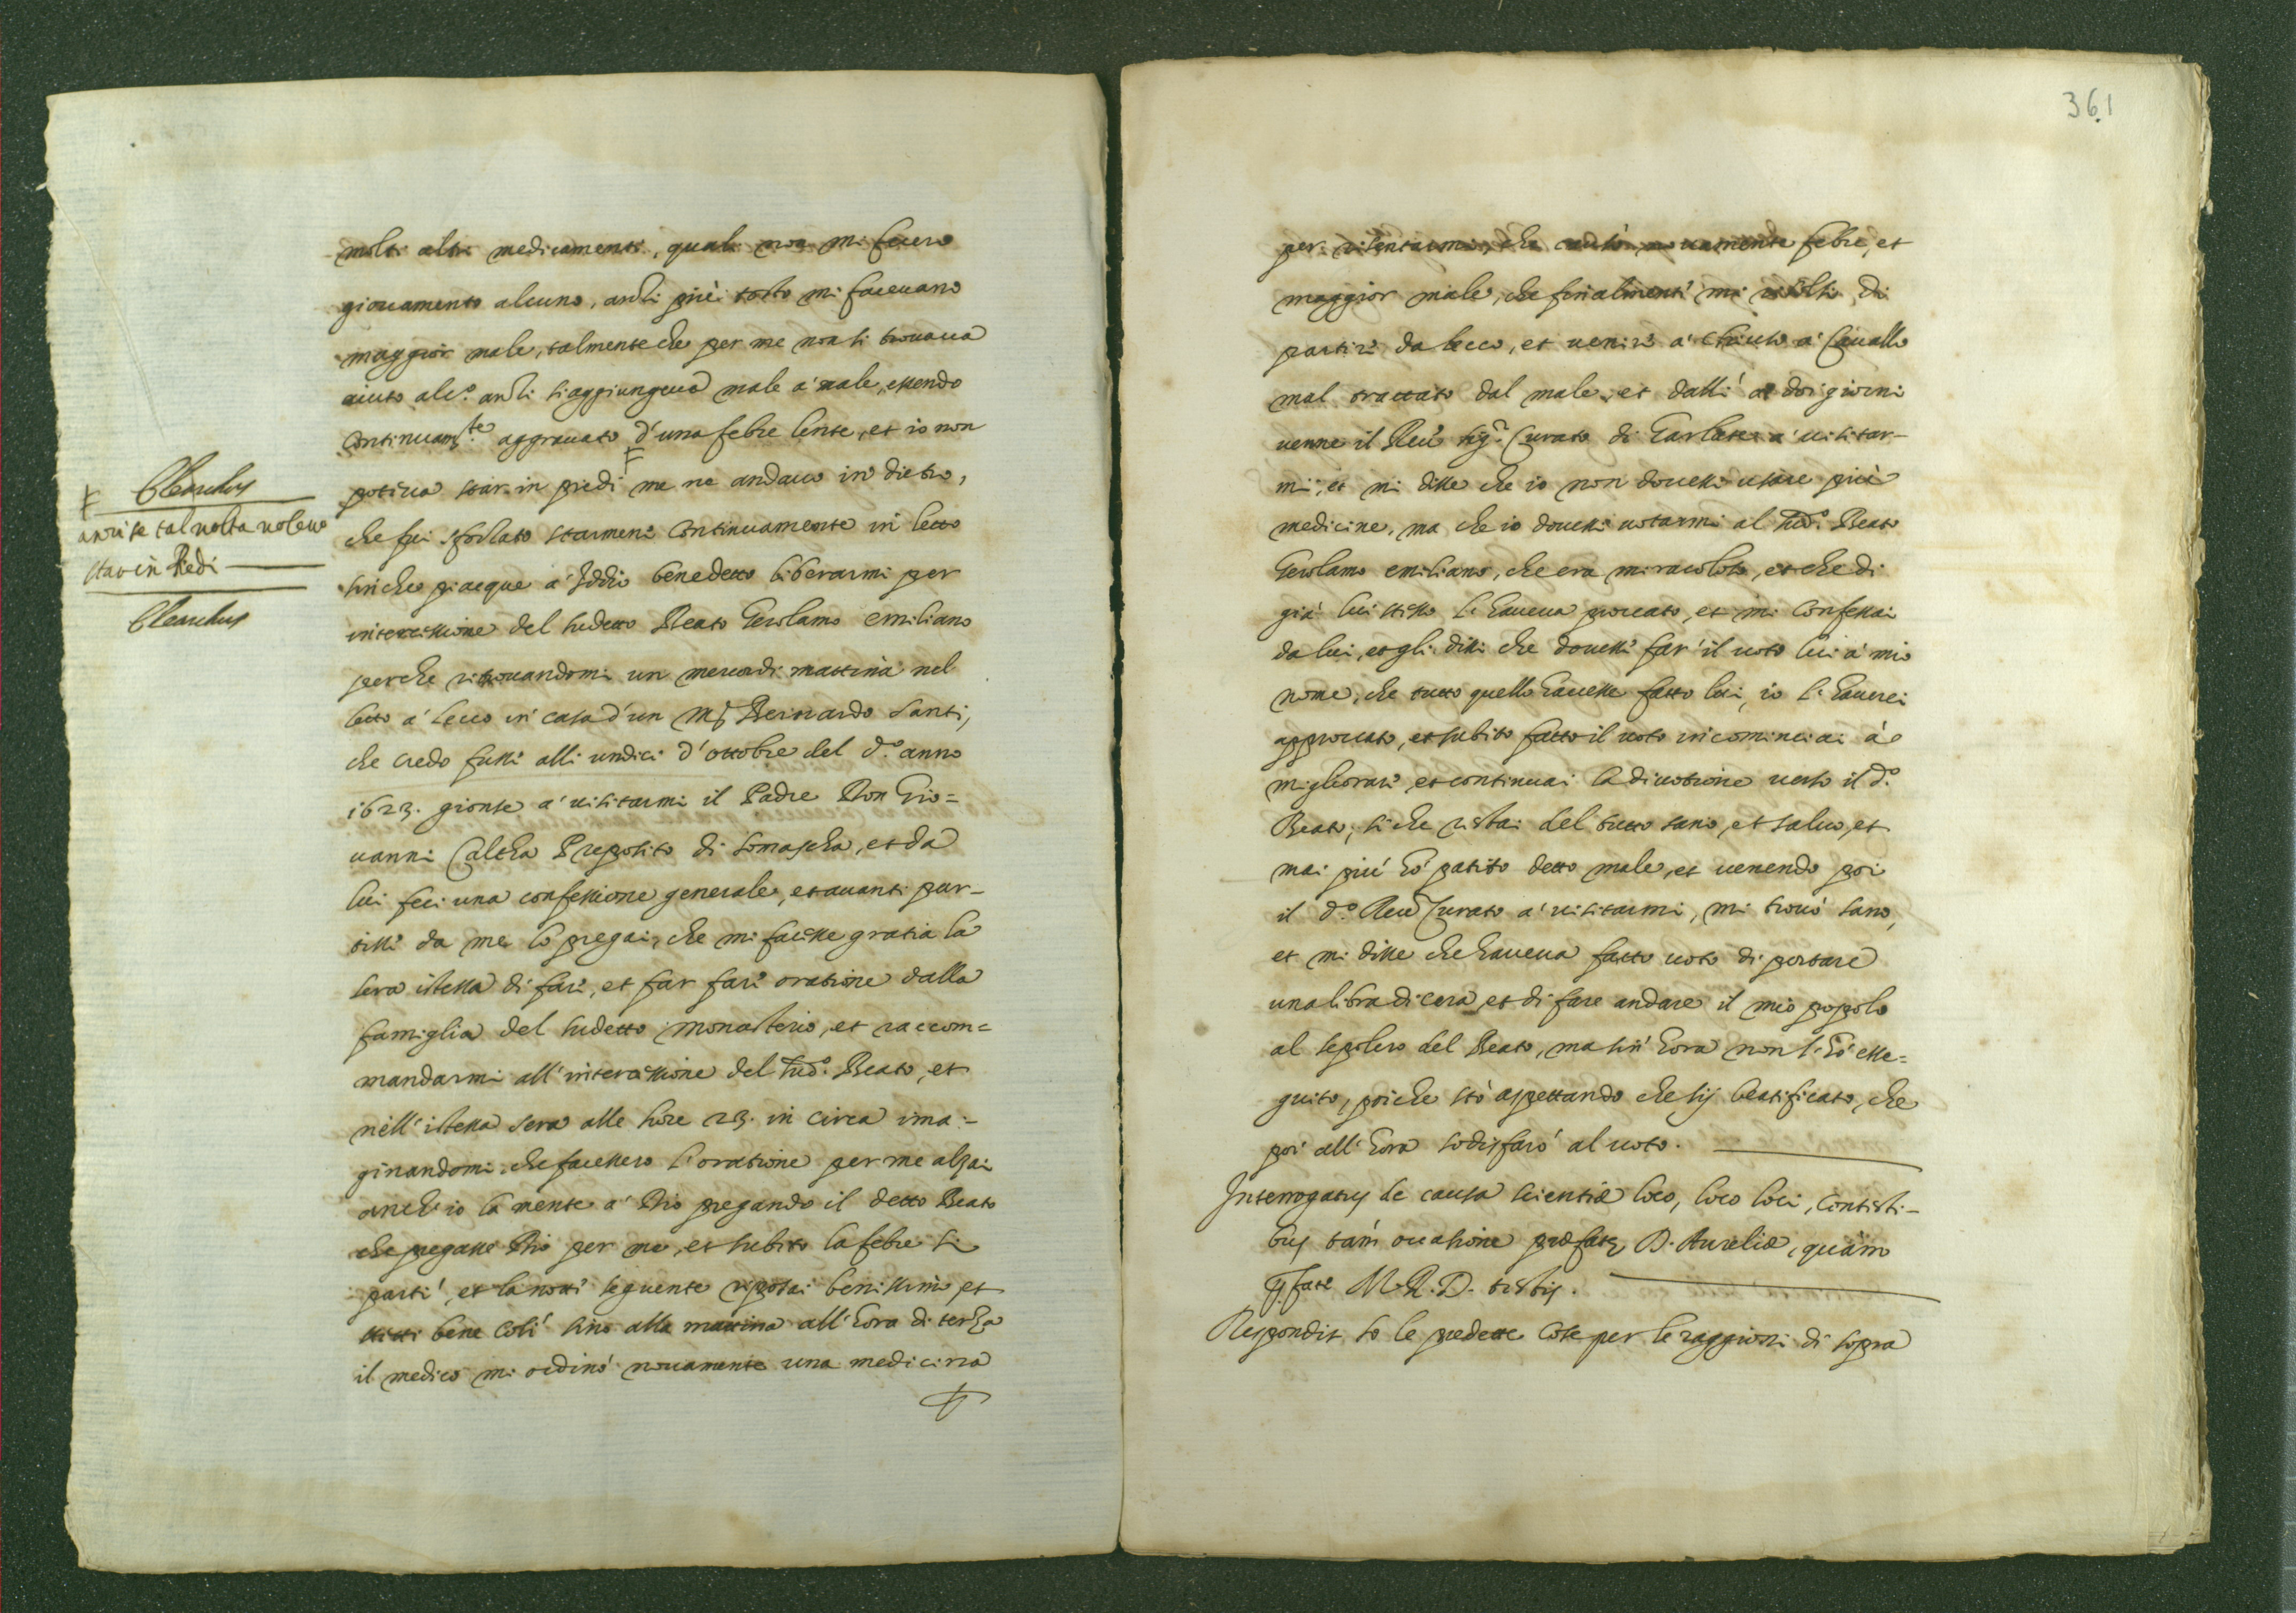 molti altri medicamenti, quali non mi fecero
giouamento alcuno, anzi più tosto mi faceuano
maggior male, talmente che per me non si trouaua
aiuto alc.º anzi s'aggiungeua male a' male, essendo
continuam.te aggrauato d'una febre lente, et io non
poteua star in piedi F me ne andauo in dietro,
che fui sforzato starmene continuamente in letto
sinche piacque a' Iddio benedetto liberarmi per
intercessione del sudetto Beato Gerolamo emiliano
perche ritrouandomi un mercordi mattina nel
letto a' Lecco in casa d'un Bernardo Santi,
che credo fusse alli undici d'ottobre del d.º anno
1623. gionse a' uisitarmi il Padre Don Gio=
uanni Calcha Preposito di Somascha, et da
lui feci una confessione generale, et auanti par-
tisse da me lo pregai, che mi facesse gratia la
sera istessa di fare, et far fare oratione dalla
famiglia del sudetto monasterio, et raccom=
mandarmi all'intercessione del sud.º Beato, et
nell'istessa sera alle hore 23. in circa ima=
ginandomi che facessero l'oratione per me alzai
anch'io la mente a' Dio pregando il detto Beato
che pregasse Dio per me, et subito la febre si
parti', et la notte seguente riposai benissimo et
stetti bene cosi' sino alla mattina all'hora di terza
il medico mi ordinò nouamente una medicina
F Olearchus
anzi se tal uolta uoleuo
star in Piedi
Olearchus
361
per risentarmi, che causò nouamente febre, et
maggior male, che finalmente mi risolsi di
partire da Lecco, et uenire a' Chiuso a' Cauallo
mal trattato dal male, et dalli' a doi giorni
uenne il Reu.do sig.r Curato di Garlate a' uisitar-
mi, et mi disse che io non douessi usare più
medicine, ma che io douessi uotarmi al sud.º Beato
Gerolamo emiliano, che era miracoloso, et che di
già lui stesso l'haueua prouato, et mi confessai
da lui, et gli dissi che douesse far' il uoto lui a' mio
nome, che tutto quello hauesse fatto lui, io l'hauerei
approuato, et subito fatto il uoto incominciai à
migliorare, et continuai la diuotione uerso il d.º
Beato, si che restai del tutto sano, et saluo, et
mai più hò patito detto male, et uenendo poi
il d.º Reu.do Curato a' uisitarmi, mi trouò sano,
et mi disse che haueua fatto uoto di portare
una libra di cera et di fare andare il mio popolo
al sepolcro del Beato, ma sin' hora non l'hò esse=
guito, poiche stò aspettando che sij beatificato, che
poi all'hora sodisfarò al uoto.
Interrogatus de causa scientiæ loco, loco loci, contesti-
bus tam occasione præfatæ D. Aureliæ, quàm
p.fati M. R. D. testis.
Respondit so le predette cose per le raggioni di sopra